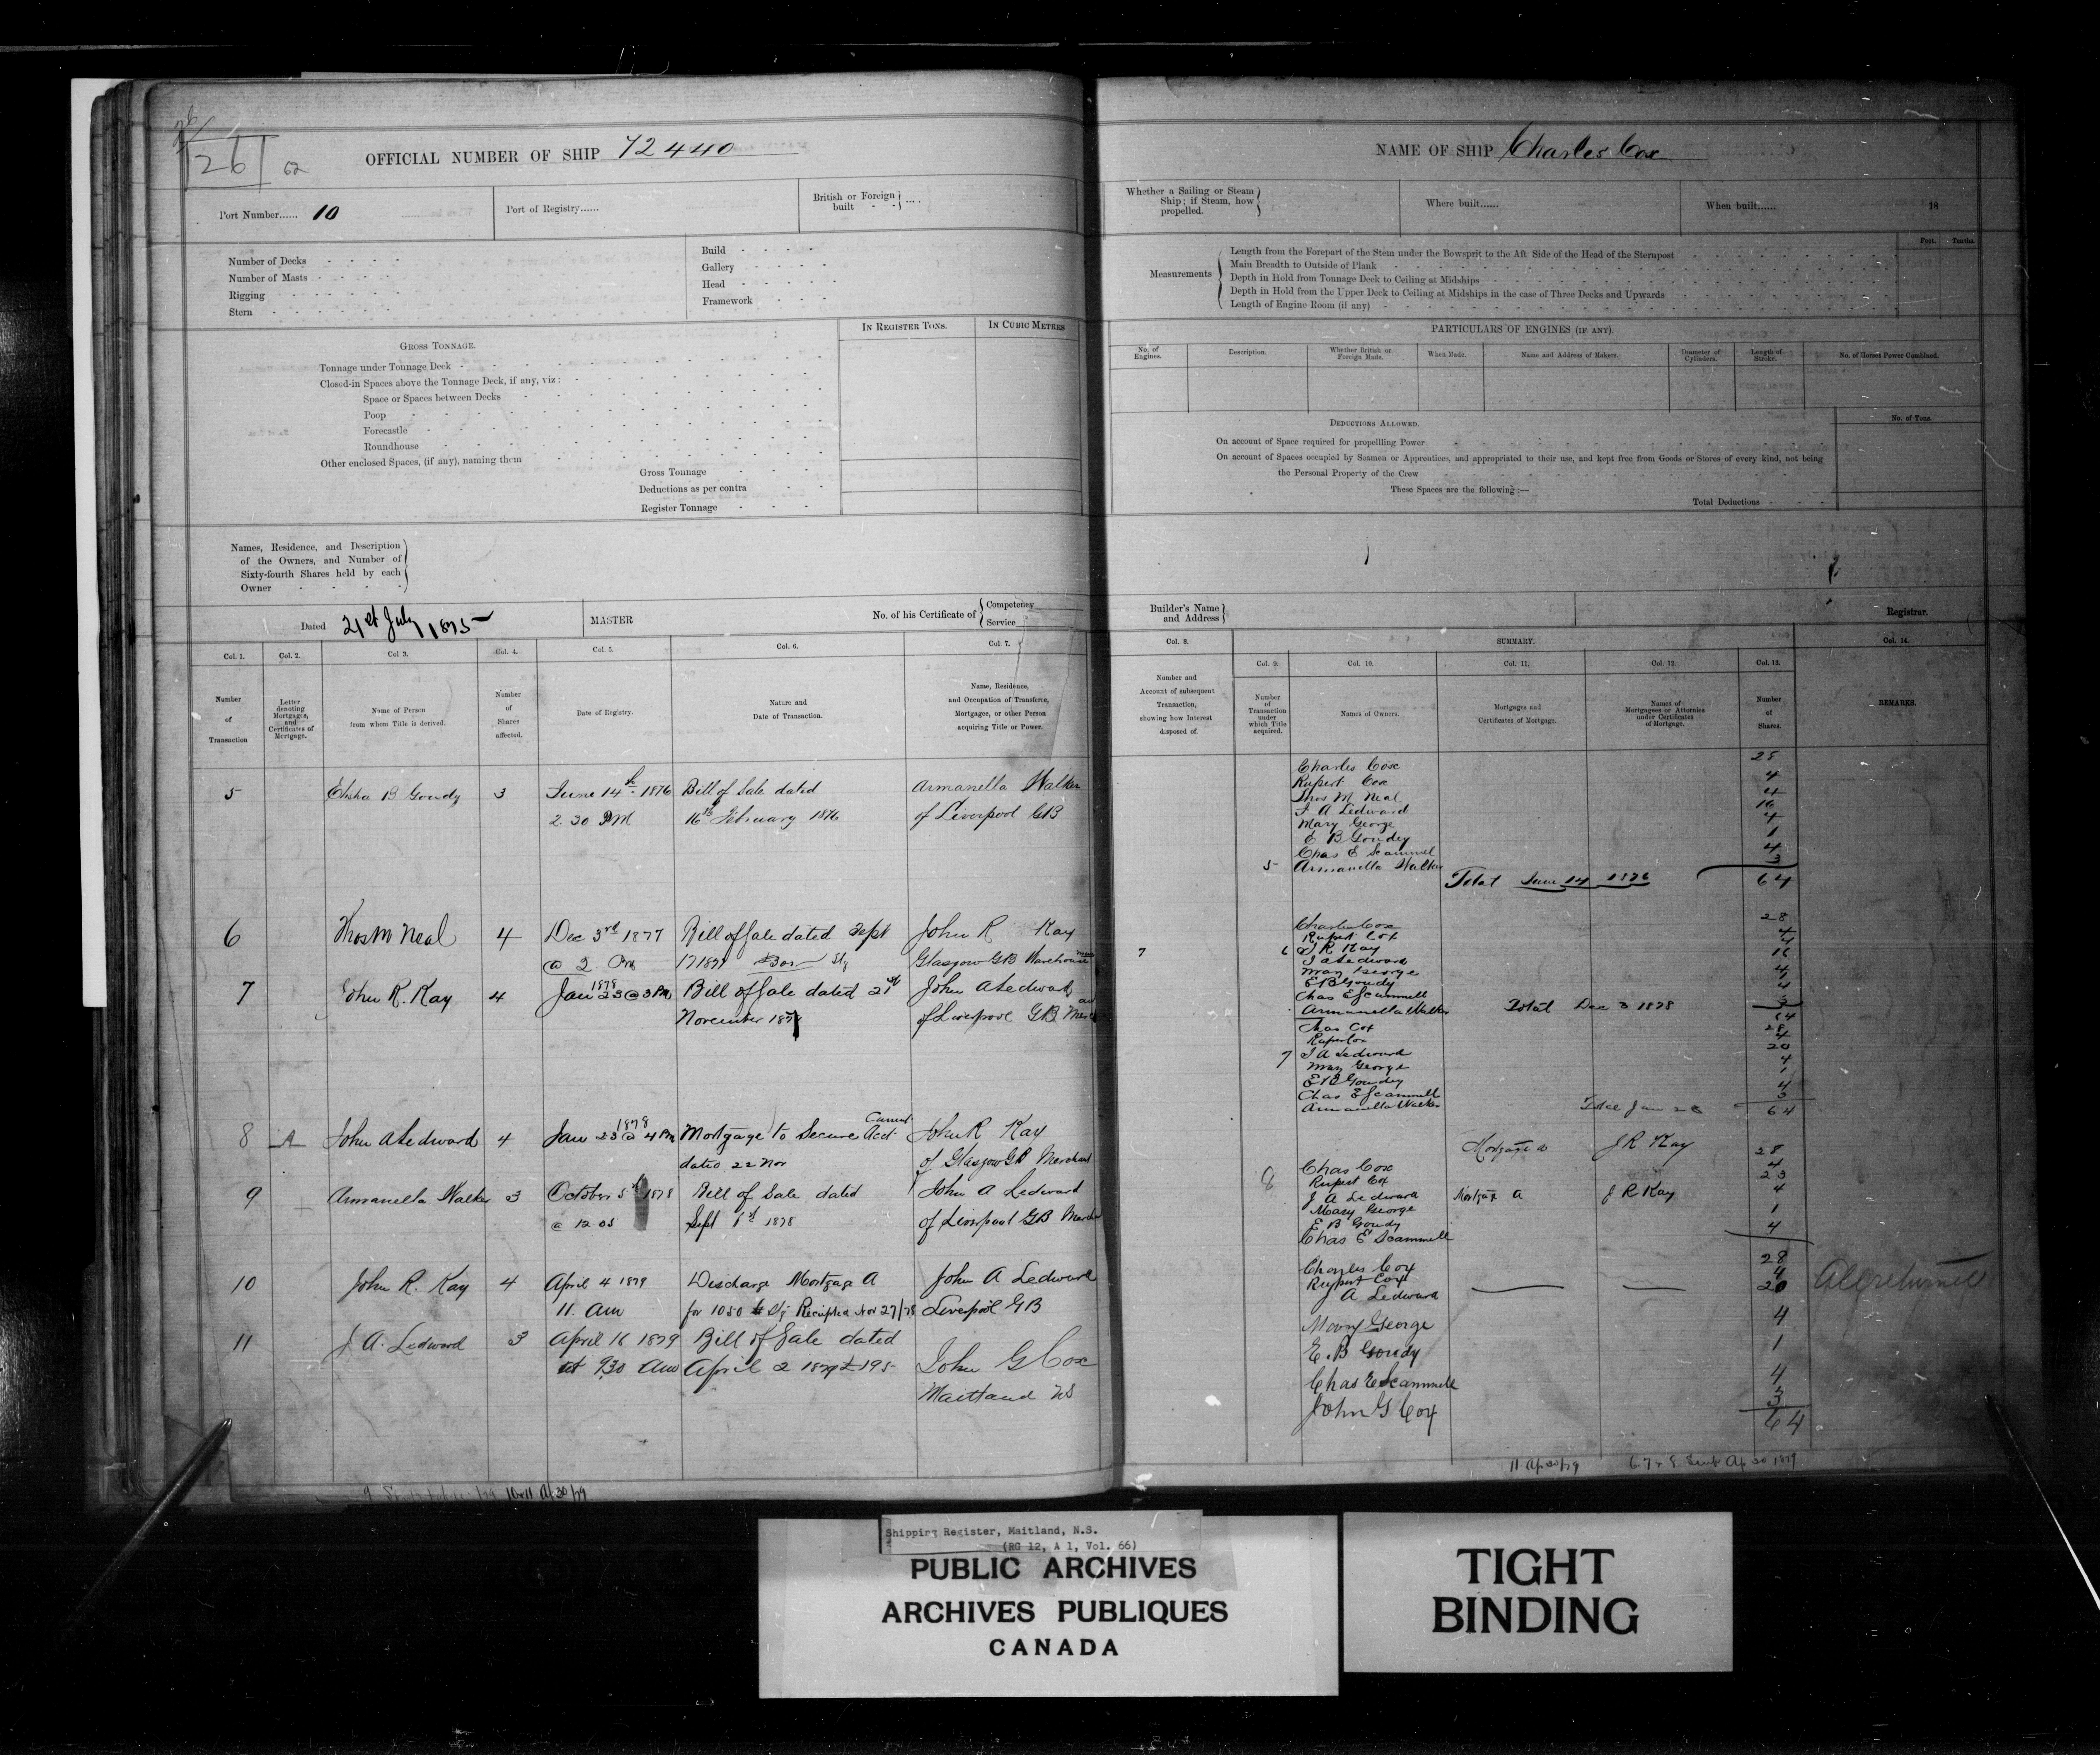 26
62
OFFICIAL NUMBER OF SHIP 72440
Port Number...... 10
Port of Registry......
British or Foreign built - - ....
Number of Decks
Number of Masts
Rigging
Stern
Build
Gallery
Head
Framework
GROSS TONNAGE.
Tonnage under Tonnage Deck
Closed-in Spaces above the Tonnage Deck, if any, viz:
Space or Spaces between Decks
Poop
Forecastle
Roundhouse
Other enclosed Spaces, (if any), naming them
Gross Tonnage
Deductions as per contra
Register Tonnage
IN REGISTER TONS.
IN CUBIC METRES
Names, Residence, and Description
of the Owners, and Number of
Sixty-fourth Shares held by each
Owner
Dated 21st July 1875
MASTER
No. of his Certificate of
Competency
Service
Col. 1. Col. 2. Col 3. Col. 4. Col. 5. Col. 6. Col. 7.
Number of Transaction
Letter denoting Mortgages, and Certificates of Mortgage.
Name of Person from whom Title is derived.
Number of Shares affected.
Date of Registry.
Nature and Date of Transaction.
Name, Residence, and Occupation of Transferee, Mortgagee, or other Person acquiring Title or Power.
5 Elisha B Goudy 3 June 14th 1876 Bill of Sale dated Armanella Walker
2.30 PM 16th February 1876 of Liverpool GB
6 Thos M Neal 4 Dec 3rd 1877 Bill of Sale dated Sept John R Kay
@ 2 Pm 17 1877 Glasgow GB Warehouse
7 John R. Kay 4 Jan 23 1878 @ 3 Pm Bill of Sale dated 21st John A Ledward
November 187 of Liverpool GB
8 A John A Ledward 4 Jan 23 1878 @ 4 Pm Mortgage to Secure Current Acct John R Kay
dated 22 Nov of Glasgow GB Merchant
9 Armanella Walker 3 October 5th 1878 Bill of Sale dated John A Ledward
@ 12 05 Sept 1st 1878 of Liverpool GB
10 John R. Kay 4 April 4 1879 Discharge Mortgage A John A Ledward
11. Am for 1050 Stg Receipted Nov 27/78 Liverpool GB
11 J A. Ledward 3 April 16 1879 Bill of Sale dated John G Cox
at 9.30 Am April 2 1879 £195- Maitland NS
10&11 Ap 30/79
NAME OF SHIP Charles Cox
Whether a Sailing or Steam
Ship; if Steam, how
propelled.
Where built......
When built......
18
Measurements
Length from the Forepart of the Stem under the Bowsprit to the Aft Side of the Head of the Sternpost
Main Breadth to Outside of Plank
Depth in Hold from Tonnage Deck to Ceiling at Midships
Depth in Hold from the Upper Deck to Ceiling at Midships in the case of Three Decks and Upwards
Length of Engine Room (if any)
Feet. Tenths.
PARTICULARS OF ENGINES (IF ANY).
No. of Engines.
Description.
Whether British or Foreign Made.
When Made.
Name and Address of Makers.
Diameter of Cylinders.
Length of Stroke.
No. of Horses Power Combined.
DEDUCTIONS ALLOWED.
No. of Tons.
On account of Space required for propellling Power
On account of Spaces occupied by Seamen or Apprentices, and appropriated to their use, and kept free from Goods or Stores of every kind, not being
the Personal Property of the Crew
These Spaces are the following:—
Total Deductions
Builder's Name
and Address
Registrar.
Col. 8. SUMMARY. Col. 14.
Col. 9. Col. 10. Col. 11. Col. 12. Col. 13.
Number and Account of subsequent Transaction, showing how Interest disposed of.
Number of Transaction under which Title acquired.
Names of Owners.
Mortgages and Certificates of Mortgage.
Names of Mortgagees or Attornies under Certificates of Mortgage.
Number of Shares.
REMARKS.
Charles Cox 28
Rupert Cox 4
Thos M Neal 4
J A Ledward 16
Mary George 4
E B Goudey 1
Chas E Scammel 4
5 Armanella Walker 3
Total June 14 1876 64
Charles Cox 28
Rupert Cox 4
7 6 J R Kay 4
J A Ledward 16
Mary George 4
E B Goudy
Chas E Scammell
Armanella Walker 3
Total Dec 3 1878 64
Chas Cox 28
Rupert Cox 4
7 J A Ledward 20
Mary George 4
E B Goudey 1
Chas E Scammell 4
Armanella Walker 3
Total Jan 23 64
Mortgage J R Kay
8 Chas Cox 28
Rupert Cox 4
J A Ledward Mortgage A J R Kay 23
Mary George 4
E B Goudy 1
Chas E Scammell 4
Charles Cox 28
Rupert Cox 4
J A Ledward 20
All returned
Mary George 4
E. B Goudy 1
Chas E Scammell 4
John G Cox 3
64
11 Ap 30/79
6 7 & 8 Sent Ap 30 1879
Shipping Register, Maitland, N.S.
(RG 12, A 1, Vol. 66)
PUBLIC ARCHIVES
ARCHIVES PUBLIQUES
CANADA
TIGHT
BINDING